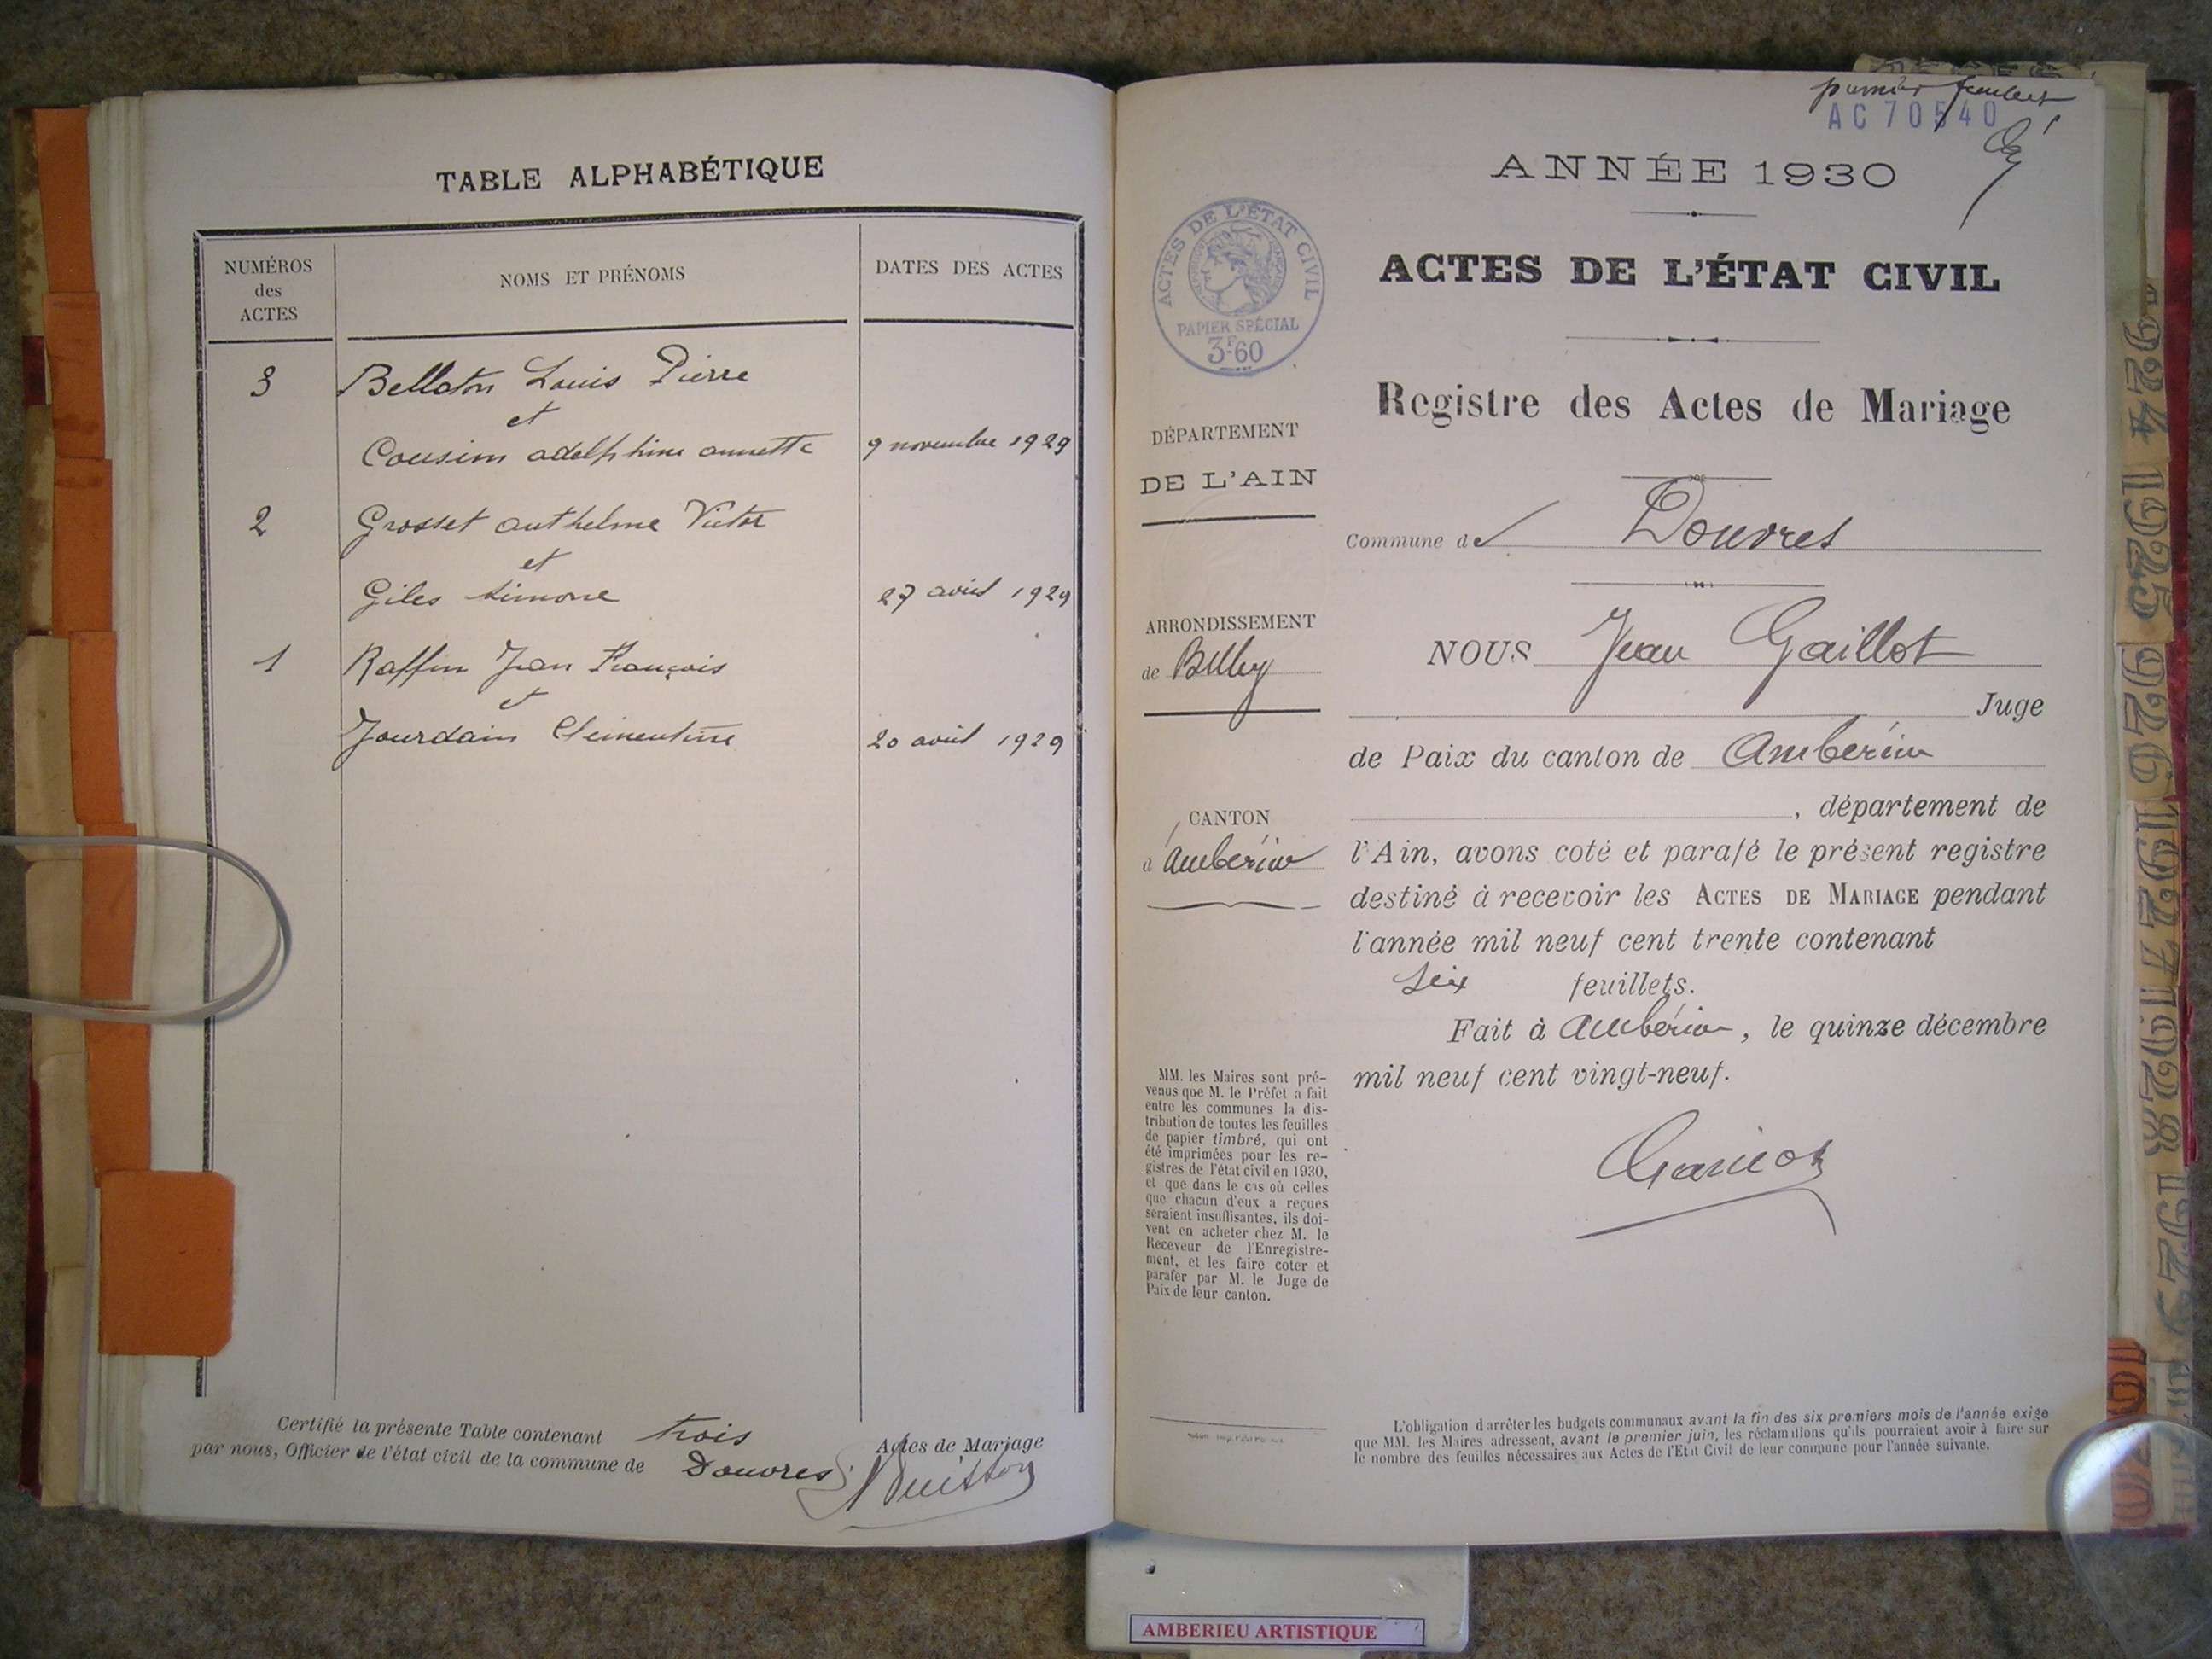 TABLE ALPHABÉTIQUE
NUMÉROS
des
ACTES
NOMS ET PRÉNOMS
DATES DES ACTES
3
Bellaton Louis Pierre
et
Cousin adelphine annette
9 novembre 1929
2
Grosset authelme Victor
et
Giles Simone
27 avril 1929
1
Raffin Jean François
et
Jourdain Clementine
20 avril 1929
Certifié la présente Table contenant trois Actes de Mariage
par nous, Officier de l'état civil de la commune de Douvres
premier feuillet
AC 70540
ANNÉE 1930
ACTES DE L'ÉTAT CIVIL
PAPIER SPÉCIAL
3F60
ACTES DE L'ÉTAT CIVIL
Registre des Actes de Mariage
DÉPARTEMENT
DE L'AIN
Commune de Douvres
ARRONDISSEMENT
de Belley
NOUS Jean Gaillot
Juge
de Paix du canton de Ambérieu
, département de
CANTON
d'Ambérieu
l'Ain, avons coté et parafé le présent registre
destiné à recevoir les ACTES DE MARIAGE pendant
l'année mil neuf cent trente contenant
six feuillets.
Fait à Ambérieu, le quinze décembre
mil neuf cent vingt-neuf.
MM. les Maires sont pré-
venus que M. le Préfet a fait
entre les communes la dis-
tribution de toutes les feuilles
de papier timbré, qui ont
été imprimées pour les re-
gistres de l'état civil en 1930,
et que dans le cas où celles
que chacun d'eux a reçues
seraient insuffisantes, ils doi-
vent en acheter chez M. le
Receveur de l'Enregistre-
ment, et les faire coter et
parafer par M. le Juge de
Paix de leur canton.
L'obligation d'arrêter les budgets communaux avant la fin des six premiers mois de l'année exige
que MM. les Maires adressent, avant le premier juin, les réclamations qu'ils pourraient avoir à faire sur
le nombre des feuilles nécessaires aux Actes de l'Etat Civil de leur commune pour l'année suivante.
1924
1925
1926
1927
1928
1929
AMBERIEU ARTISTIQUE